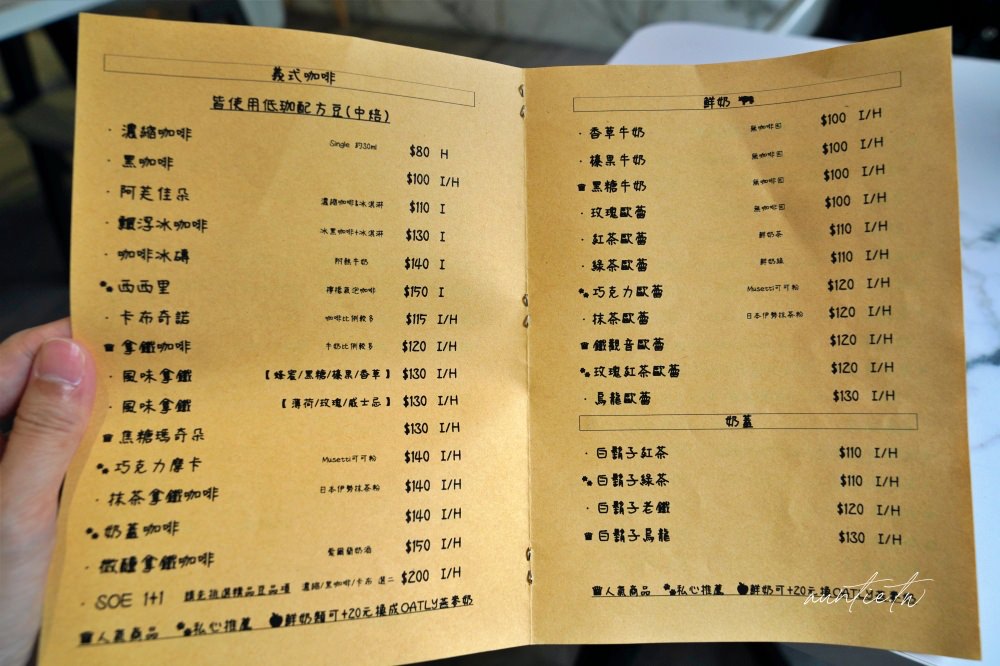 義式咖啡
皆使用低珈配方豆(中焙)
· 濃縮咖啡 Single 約30ml $80 H
· 黑咖啡 $100 I/H
· 阿芙佳朵 濃縮咖啡&冰淇淋 $110 I
· 飄浮冰咖啡 冰黑咖啡+冰淇淋 $130 I
· 咖啡冰磚 附鮮牛奶 $140 I
西西里 檸檬氣泡咖啡 $150 I
· 卡布奇諾 咖啡比例較多 $115 I/H
拿鐵咖啡 牛奶比例較多 $120 I/H
· 風味拿鐵 【蜂蜜/黑糖/榛果/香草】 $130 I/H
· 風味拿鐵 【薄荷/玫瑰/威士忌】 $130 I/H
焦糖瑪奇朵 $130 I/H
巧克力摩卡 Musetti可可粉 $140 I/H
· 抹茶拿鐵咖啡 日本伊勢抹茶粉 $140 I/H
奶蓋咖啡 $140 I/H
微醺拿鐵咖啡 愛爾蘭奶酒 $150 I/H
· SOE 1+1 請先挑選精品豆品項 濃縮/黑咖啡/卡布 選二 $200 I/H
人氣商品 私心推薦 鮮奶類可+20元換成OATLY燕麥奶
鮮奶
· 香草牛奶 無咖啡因 $100 I/H
· 榛果牛奶 無咖啡因 $100 I/H
黑糖牛奶 無咖啡因 $100 I/H
· 玫瑰歐蕾 無咖啡因 $100 I/H
· 紅茶歐蕾 鮮奶茶 $110 I/H
· 綠茶歐蕾 鮮奶綠 $110 I/H
巧克力歐蕾 Musetti可可粉 $120 I/H
· 抹茶歐蕾 日本伊勢抹茶粉 $120 I/H
鐵觀音歐蕾 $120 I/H
玫瑰紅茶歐蕾 $120 I/H
· 烏龍歐蕾 $130 I/H
奶蓋
· 白鬍子紅茶 $110 I/H
白鬍子綠茶 $110 I/H
· 白鬍子老鐵 $120 I/H
白鬍子烏龍 $130 I/H
人氣商品 私心推薦 鮮奶可+20元換成OATLY燕麥奶